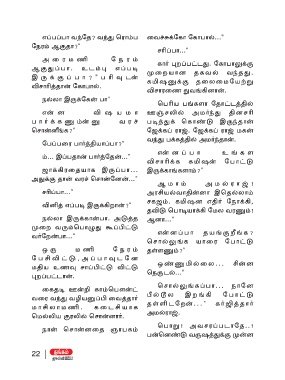 எப்பப்பா வந்தே? வந்து ரொம்ப
நேரம் ஆகுதா?
அரைமணி நேரம்
ஆகுதுப்பா. உடம்பு எப்படி
இருக்குப்பா?" பரிவுடன்
விசாரித்தான் கோபால்.
நல்லா இருக்கேன் பா"
என்ன விஷயமா
பார்க்கணும்னு வரச்
சொன்னீங்க?"
பேப்பரை பார்த்தியாப்பா?
ம்... இப்பதான் பார்த்தேன்..."
ஜாக்கிரதையாக இருப்பா...
அதுக்கு தான் வரச் சொன்னேன்..."
சரிப்பா..."
வினித் எப்படி இருக்கிறான்?
நல்லா இருக்கான்பா. அடுத்த
முறை வரும்பொழுது கூப்பிட்டு
வர்றேன்பா..."
ஒரு மணி நேரம்
பேசிவிட்டு, அப்பாவுடனே
மதிய உணவு சாப்பிட்டு விட்டு
புறப்பட்டான்.
கைதடி ஊன்றி காம்பௌண்ட்
வரை வந்து வழியனுப்பி வைத்தார்
மாசிலாமணி. கடைசியாக
மெல்லிய குரலில் சொன்னார்.
நான் சொன்னதை ஞாபகம்
வைச்சுக்கோ கோபால்..."
சரிப்பா..."
கார் புறப்பட்டது. கோபாலுக்கு
முறையான தகவல் வந்தது.
கமிஷனுக்கு தலைமையேற்று
விசாரணை துவங்கினான்.
பெரிய பங்களா தோட்டத்தில்
ஊஞ்சலில் அமர்ந்து தினசரி
படித்துக் கொண்டு இருந்தான்
ஜேக்கப் ராஜ். ஜேக்கப் ராஜ் மகன்
வந்து பக்கத்தில் அமர்ந்தான்.
என்னப்பா உங்கள
விசாரிக்க கமிஷன் போட்டு
இருக்காங்களாம்?
ஆமாம் அமல்ராஜ்!
அரசியல்வாதின்னா இதெல்லாம்
சகஜம். கமிஷன எதிர் நோக்கி,
தவிடு பொடியாக்கி மேல வரணும்!
ஆனா..."
என்னப்பா தயங்குறீங்க?
சொல்லுங்க யாரை போட்டு
தள்ளணும்?
ஒண்ணுமில்லை... சின்ன
நெருடல்..."
சொல்லுங்கப்பா... நானே
பீல்டுல இறங்கி போட்டு
தள்ளிடறேன்..." கர்ஜித்தார்
அமல்ராஜ்.
பொறு! அவசரப்படாதே..!
பன்னெண்டு வருஷத்துக்கு முன்ன
22